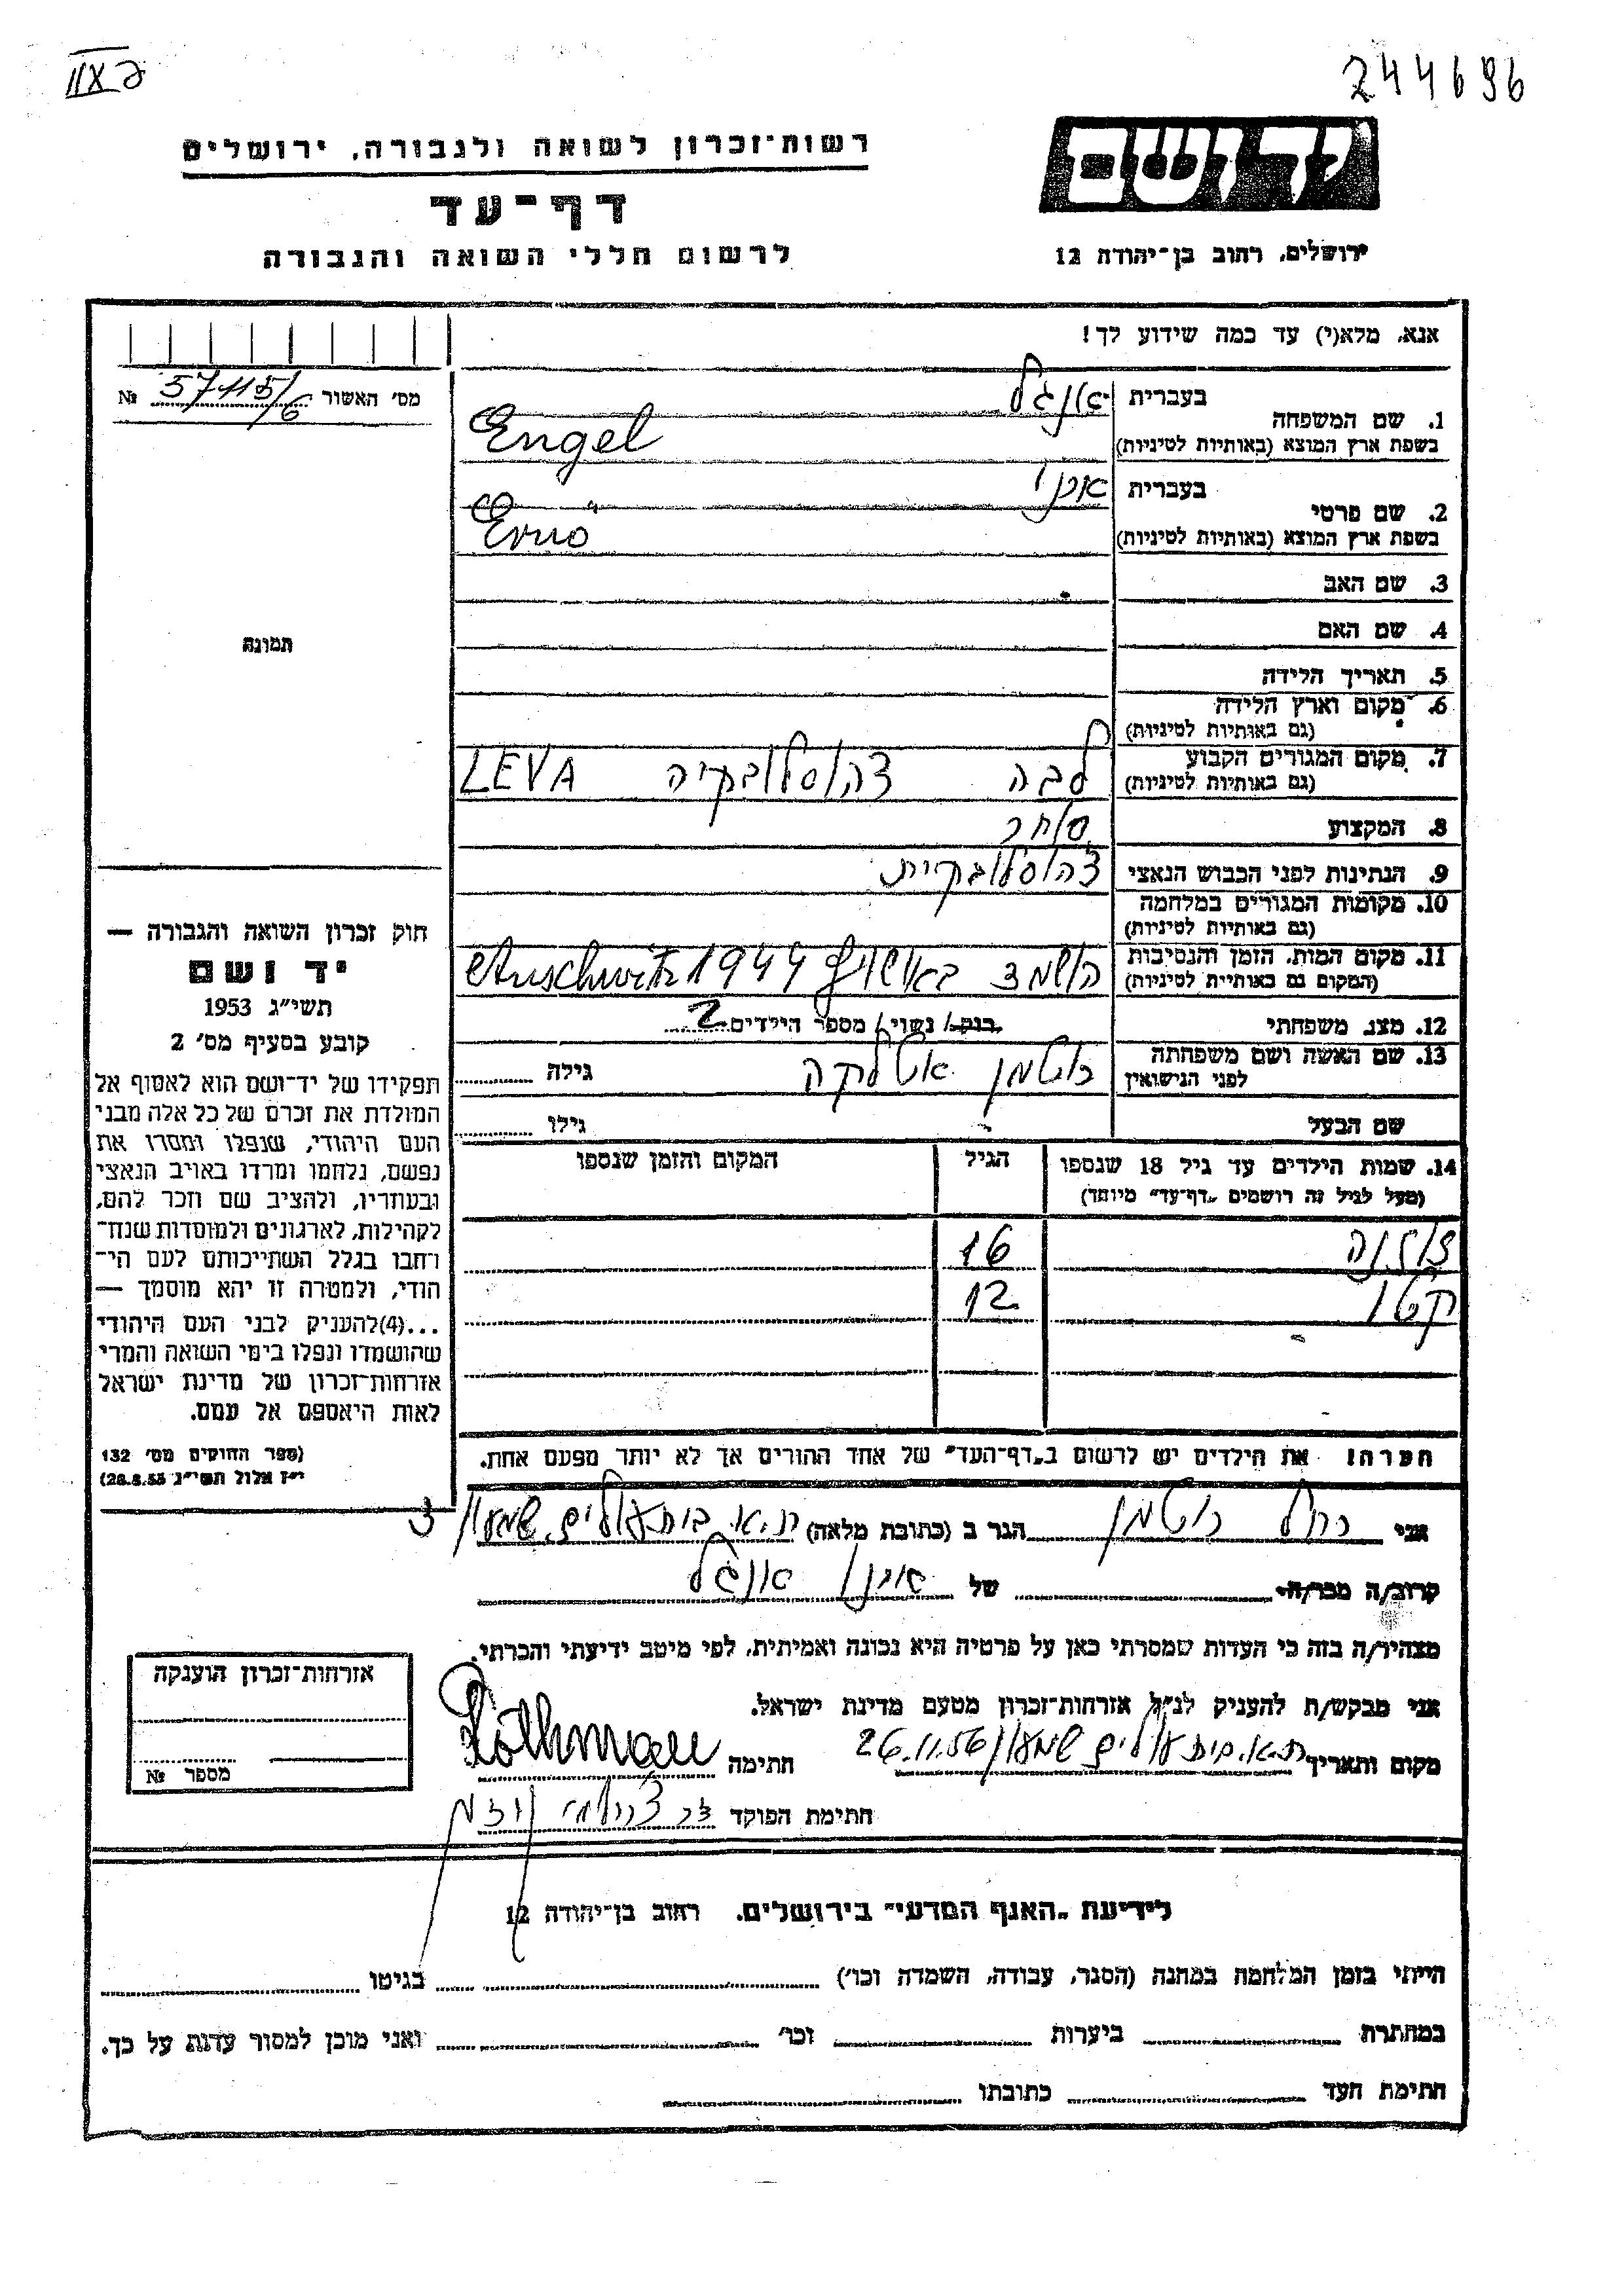 244696
יד ושם
רשות־זכרון לשואה ולגבורה, ירושלים
דף־עד
לרשום חללי השואה והגבורה
ירושלים, רחוב בן־יהודה 12
אנא, מלא(י) עד כמה שידוע לך!
מס' האשור 57115/6 №
1. שם המשפחה
בעברית אנגל
בשפת ארץ המוצא (באותיות לטיניות) Engel
2. שם פרטי
בעברית
בשפת ארץ המוצא (באותיות לטיניות) Ernö
3. שם האב
4. שם האם
תמונה
5. תאריך הלידה
6. מקום וארץ הלידה
(גם באותיות לטיניות)
7. מקום המגורים הקבוע לבה צ'הוסלובקיה LEVA
(גם באותיות לטיניות)
8. המקצוע סוחר
9. הנתינות לפני הכבוש הנאצי צ'הוסלובקית
10. מקומות המגורים במלחמה
(גם באותיות לטיניות)
11. מקום המות, הזמן והנסיבות הושמד באושויץ Auschwitz 1944
(המקום גם באותיית לטיניות)
12. מצב משפחתי רווק/ נשוי/ מספר הילדים 2
13. שם האשה ושם משפחתה רוטמן גילה
לפני הנישואין
שם הבעל גילו
14. שמות הילדים עד גיל 18 שנספו הגיל המקום והזמן שנספו
(מעל לגיל זה רושמים "דף־עד" מיוחד)
זוזנה 16
קטו 12
הערה! את הילדים יש לרשום ב"דף־העד" של אחד ההורים אך לא יותר מפעם אחת.
חוק זכרון השואה והגבורה —
יד ושם
תשי"ג 1953
קובע בסעיף מס' 2
תפקידו של יד־ושם הוא לאסוף אל
המולדת את זכרם של כל אלה מבני
העם היהודי, שנפלו ומסרו את
נפשם, נלחמו ומרדו באויב הנאצי
ובעוזריו, ולהציב שם וזכר להם,
לקהילות, לארגונים ולמוסדות שנח־
רחבו בגלל השתייכותם לעם הי־
הודי, ולמטרה זו יהא מוסמך —
...(4)להעניק לבני העם היהודי
שהושמדו ונפלו בימי השואה והמרי
אזרחות־זכרון של מדינת ישראל
לאות היאספם אל עמם.
(ספר החוקים מס' 132
י"ז אלול תשי"ג 28.8.53)
אני רחל רוטמן הגר ב (כתובת מלאה) ת.א. בית עולים שמעון 3
קרוב/ה מכר/ה של ארנו אנגל
מצהיר/ה בזה כי העדות שמסרתי כאן על פרטיה היא נכונה ואמיתית, לפי מיטב ידיעתי והכרתי.
אני מבקש/ת להעניק לנ"ל אזרחות־זכרון מטעם מדינת ישראל.
מקום ותאריך ת.א. בית עולים שמעון 26.11.56 חתימה Rothman
חתימת הפוקד
אזרחות־זכרון הוענקה
מספר №
לידיעת "האגף המדעי" בירושלים, רחוב בן־יהודה 12
הייתי בזמן המלחמה במחנה (הסגר, עבודה, השמדה וכו') בגיטו
במחתרת ביערות וכו' ואני מוכן למסור עדות על כך.
חתימת העד כתובתו